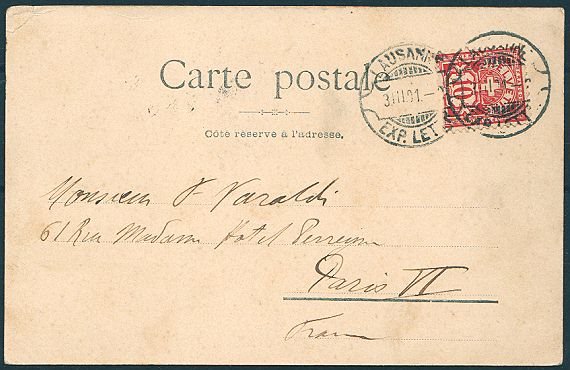 Carte postale
LAUSANNE
3.III.01.–
EXP. LET.
10
Côté réservé à l'adresse.
Monsieur P. Varaldi
61 Rue Madame Hotel Perreyve
Paris VI
France